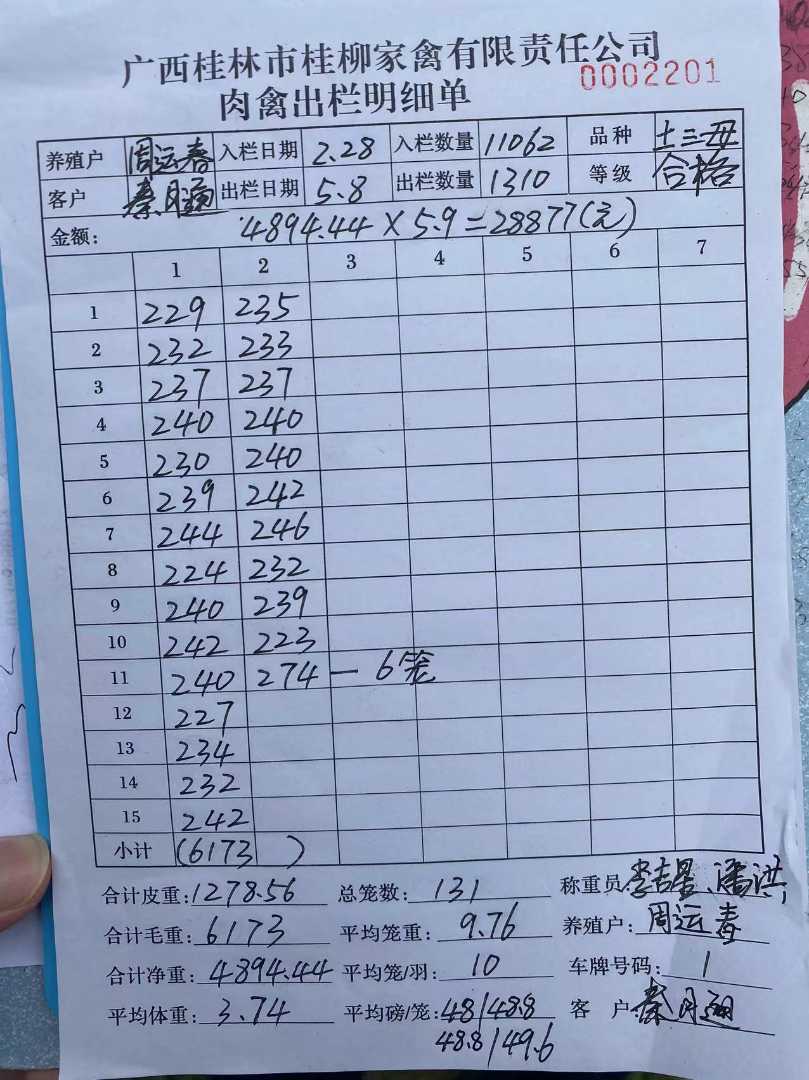 广西桂林市桂柳家禽有限责任公司
0002201
肉禽出栏明细单
养殖户 周运春 入栏日期 2.28 入栏数量 11062 品种 土三母
客户 秦月 出栏日期 5.8 出栏数量 1310 等级 合格
金额: 4894.44 × 5.9 = 28877(元)
1 2 3 4 5 6 7
1 229 235
2 232 233
3 237 237
4 240 240
5 230 240
6 239 242
7 244 246
8 224 232
9 240 239
10 242 223
11 240 274 — 6笼
12 227
13 234
14 232
15 242
小计 (6173)
合计皮重: 1278.56 总笼数: 131 称重员: 李吉星、潘洪
合计毛重: 6173 平均笼重: 9.76 养殖户: 周运春
合计净重: 4894.44 平均笼/羽: 10 车牌号码: 1
平均体重: 3.74 平均磅/笼: 48/48.8 客户 秦月
48.8/49.6